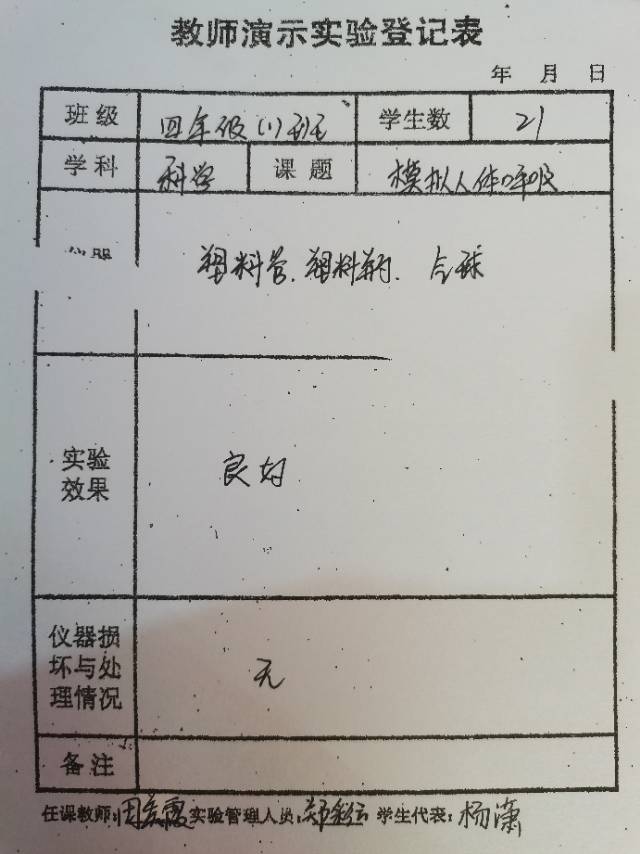 教师演示实验登记表
年 月 日
班级 四年级(1)班 学生数 21
学科 科学 课题 模拟人体呼吸
塑料管、塑料瓶、气球
实验效果 良好
仪器损坏与处理情况 无
备注
任课教师: 实验管理人员: 学生代表:杨潇